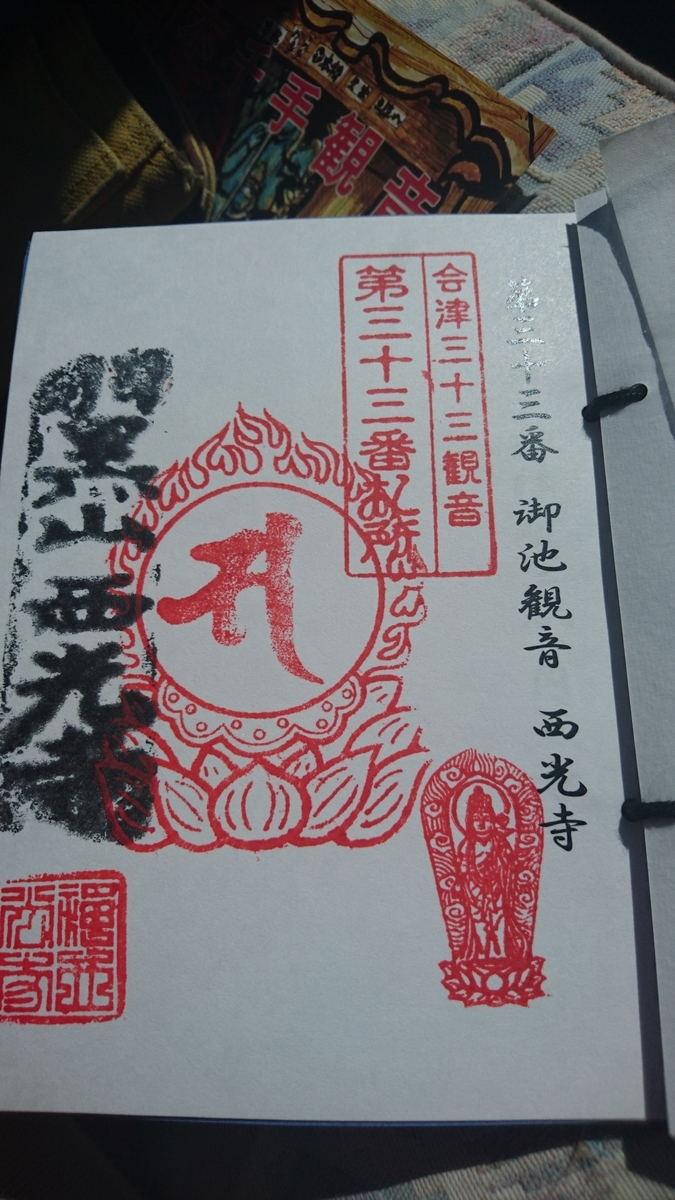 手観音
第三十三番 御池観音 西光寺
会津三十三観音
第三十三番札所
羽黒山西光寺